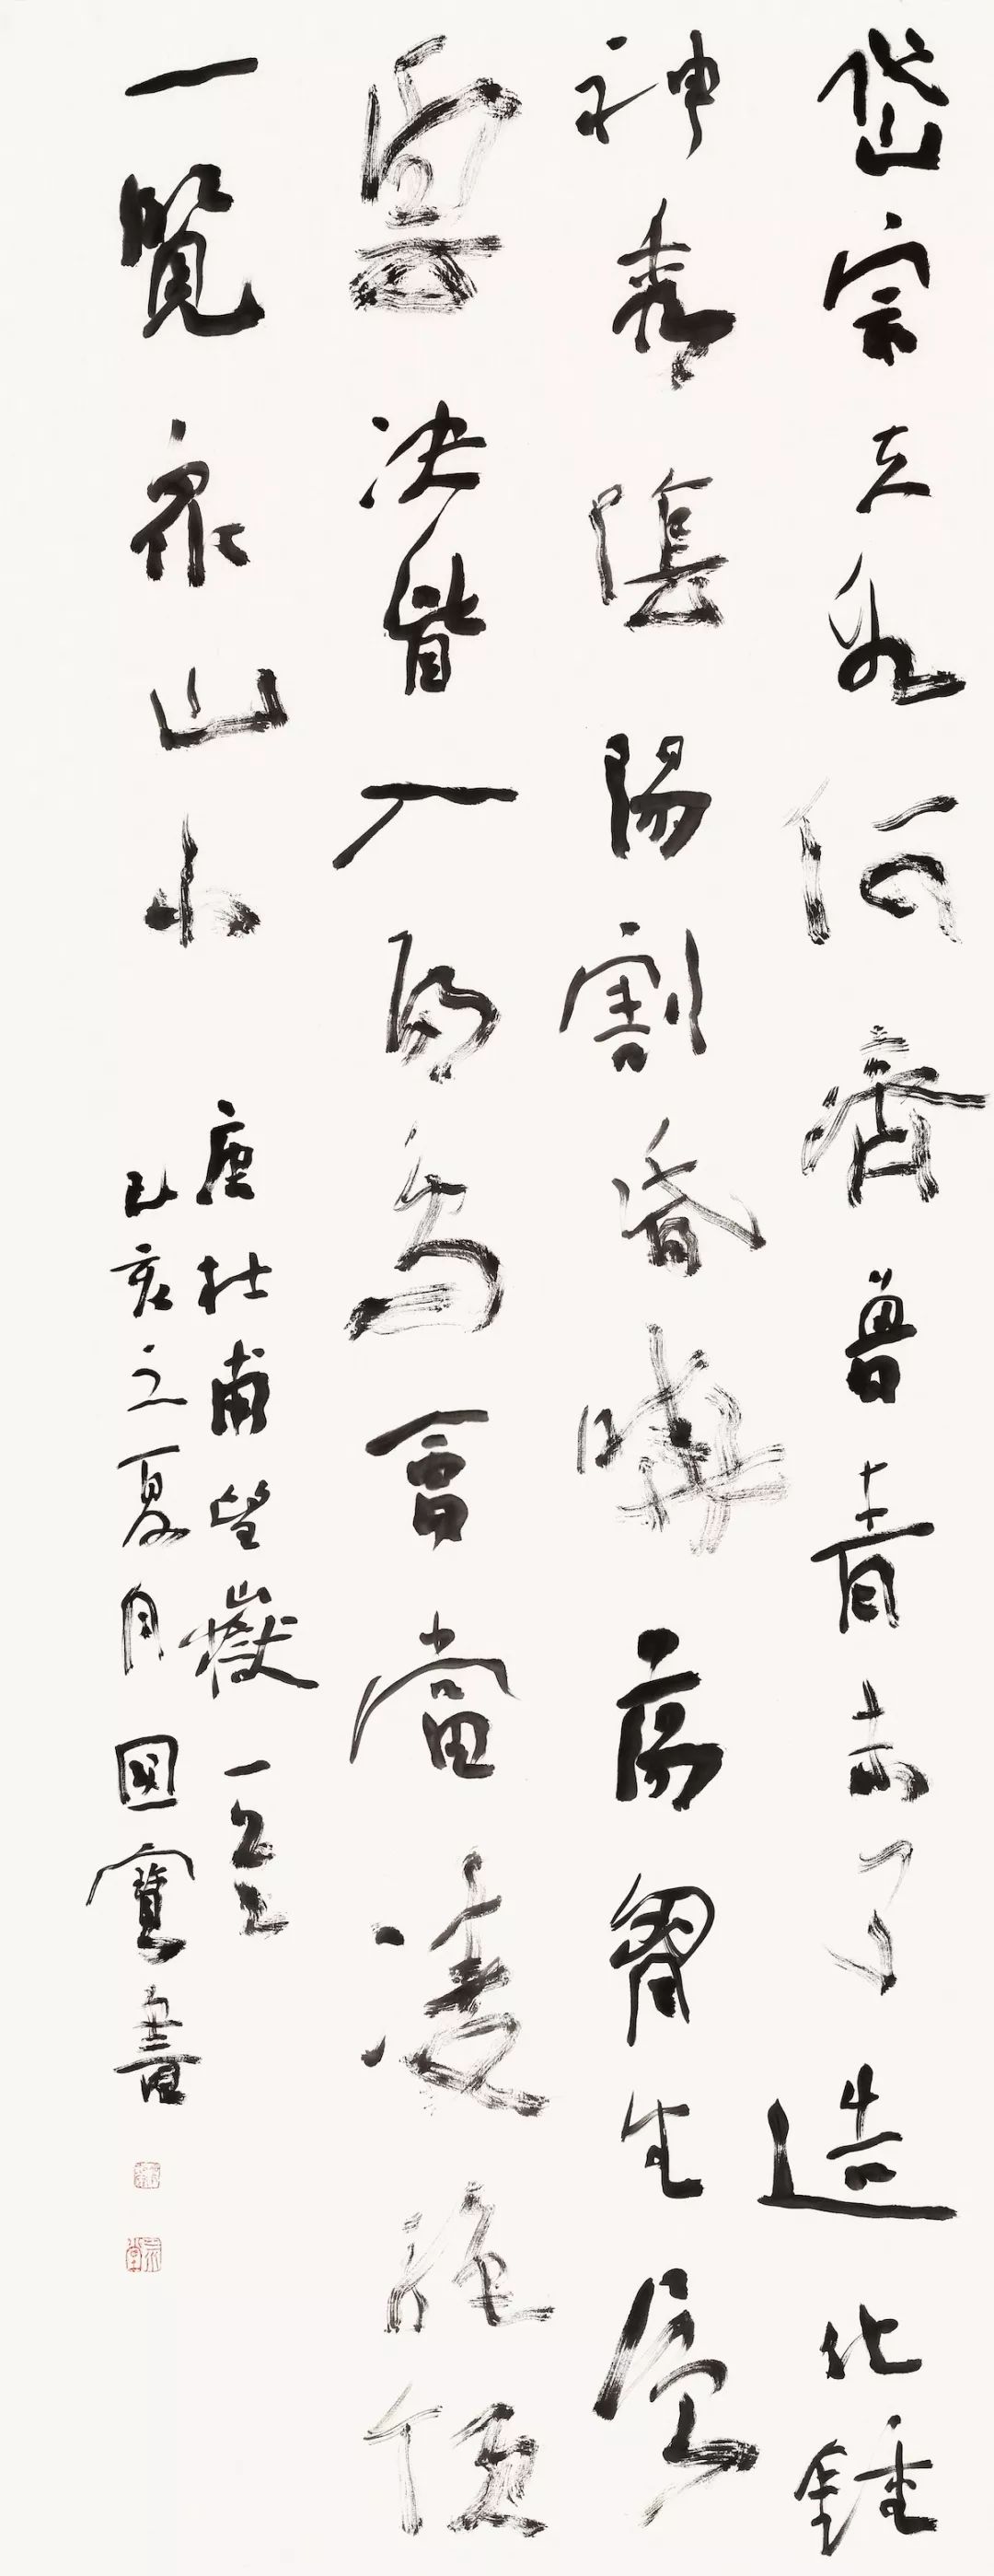 岱宗夫如何齊魯青未了造化鍾
神秀陰陽割昏曉胷生層
雲决眥入歸鳥會當凌絕頂
一覽眾山小
唐杜甫望嶽一
己亥之夏月國寶書